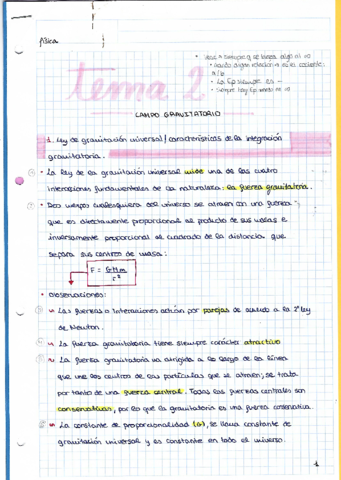 Física
tema 2
CAMPO GRAVITATORIO
1. Ley de gravitación universal / características de la
gravitatoria.
• La ley de la gravitación universal mide una de las cuatro
interacciones fundamentales de la naturaleza: la fuerza gravitatoria.
• Dos cuerpos cualesquiera del universo se atraen con una fuerza
que es directamente proporcional al producto de sus masas e
inversamente proporcional al cuadrado de la distancia que
separa sus centros de masa:
F = GMm / r²
• Observaciones:
Las fuerzas o interacciones actúan por parejas de acuerdo a la ley
de Newton.
La fuerza gravitatoria tiene siempre carácter atractivo
La fuerza gravitatoria va dirigida a lo largo de la línea
que une los centros de las partículas que se atraen; se trata
por tanto de una fuerza central. Todas las fuerzas centrales son
conservativas, por lo que la gravitatoria es una fuerza conservativa.
La constante de proporcionalidad (G), se llama constante de
gravitación universal y es constante en todo el universo.
1